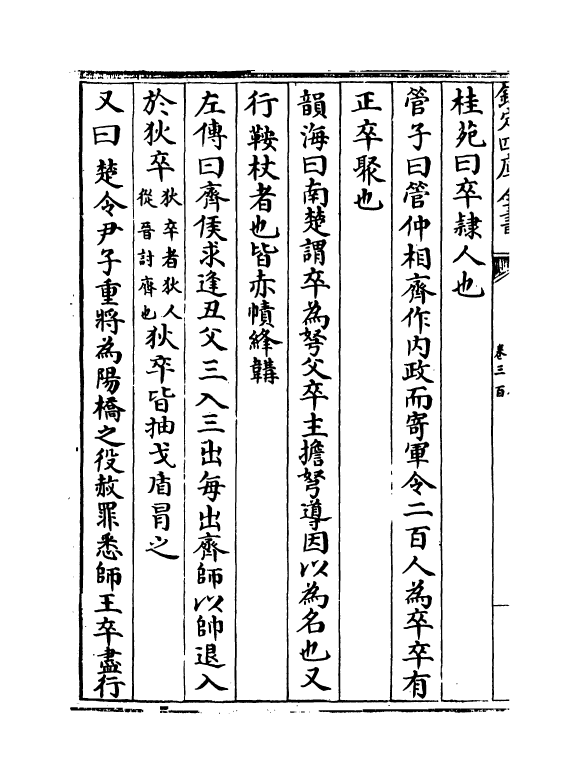 欽定四庫全書
卷三百
桂苑曰卒隷人也
管子曰管仲相齊作内政而寄軍令二百人為卒卒有
正卒聚也
韻海曰南楚謂卒為弩父卒主擔弩導因以為名也又
行鞍杖者也皆赤幘綘韝
左傳曰齊侯求逢丑父三入三出每出齊師以帥退入
於狄卒狄卒者狄人從晉討齊也狄卒皆抽戈盾冒之
又曰楚令尹子重將為陽橋之役赦罪悉師王卒盡行